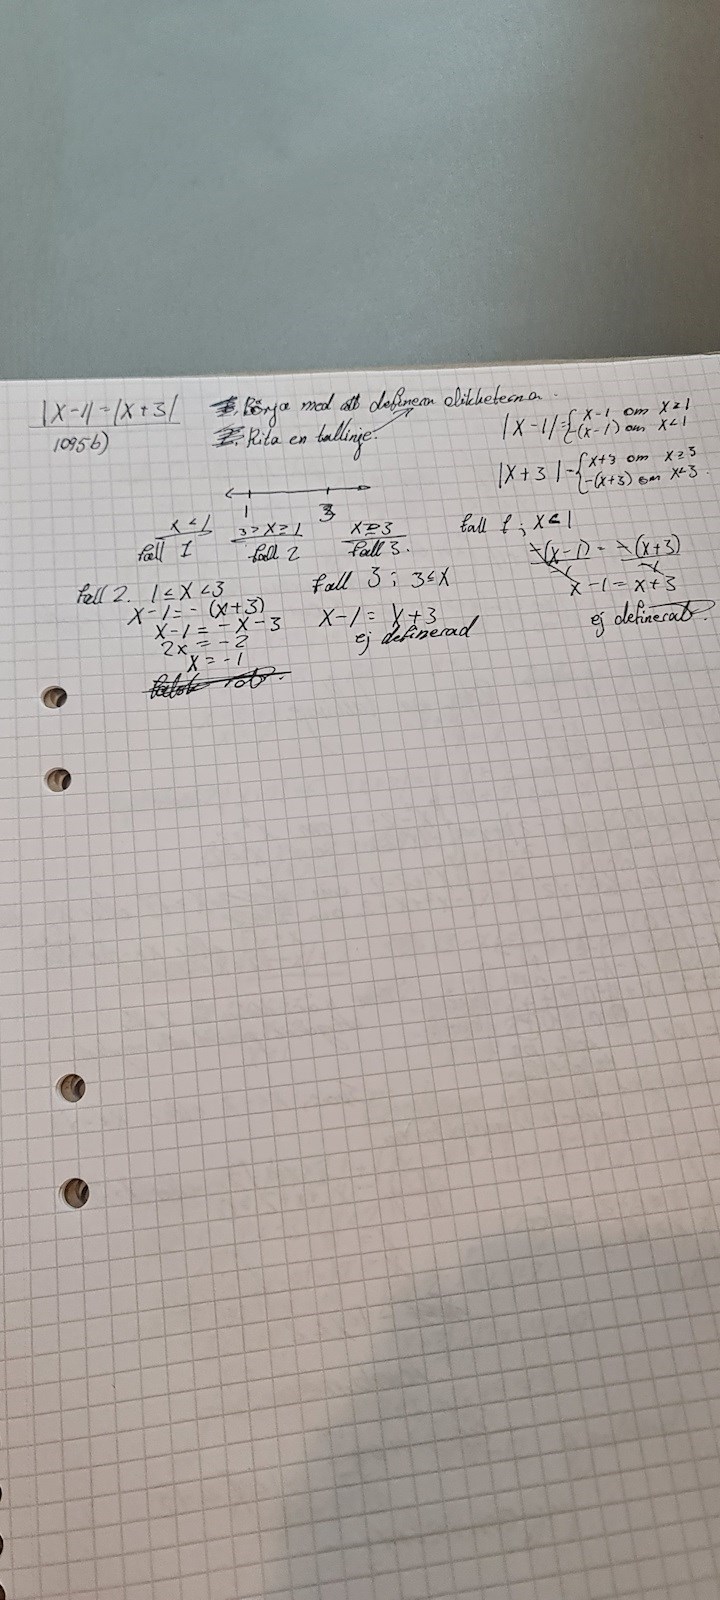 |x-1|=|x+3|
1095b)
Börja med att definera olikheterna.
Rita en tallinje.
|x-1|={x-1 om x≥1
-(x-1) om x<1
|x+3|={x+3 om x≥3
-(x+3) om x<3.
1 3
x<1 3>x≥1 x≥3
fall 1 fall 2 fall 3.
fall 1; x<1
-(x-1) = -(x+3)
-1 -1
x-1=x+3
ej definerat.
fall 2. 1≤x<3
x-1=-(x+3)
x-1=-x-3
2x=-2
x=-1
fall 3; 3≤x
x-1=x+3
ej definerad